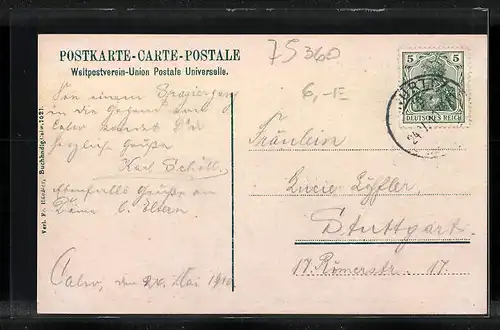 POSTKARTE-CARTE-POSTALE
Weltpostverein-Union Postale Universelle.
Von einem Spaziergang
in die Gegend von
Calw sendet Dir
herzliche Grüße
Karl Scholl.
Ebenfalls Grüße an
Deine l. Eltern
Calw, den 24. Mai 1910
75360
6,-
5 5
DEUTSCHES REICH
24.
Fräulein
Lucie Löffler
Stuttgart.
17. Römerstr. 17.